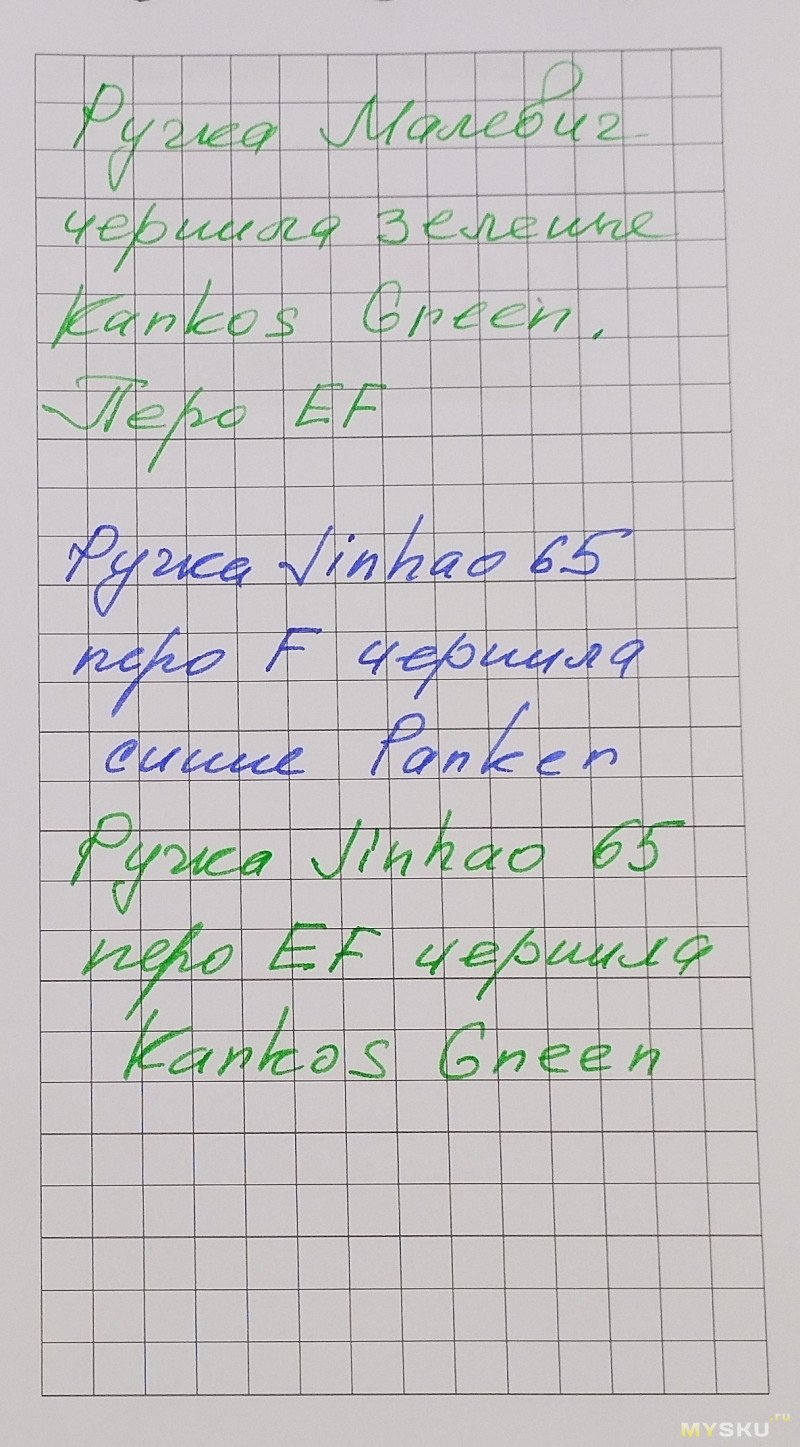 Ручка Малевич
чернила зеленые
Kankos Green.
Перо EF
Ручка Jinhao 65
перо F чернила
синие Parker
Ручка Jinhao 65
перо EF чернила
Kankos Green
MYSKU.ru